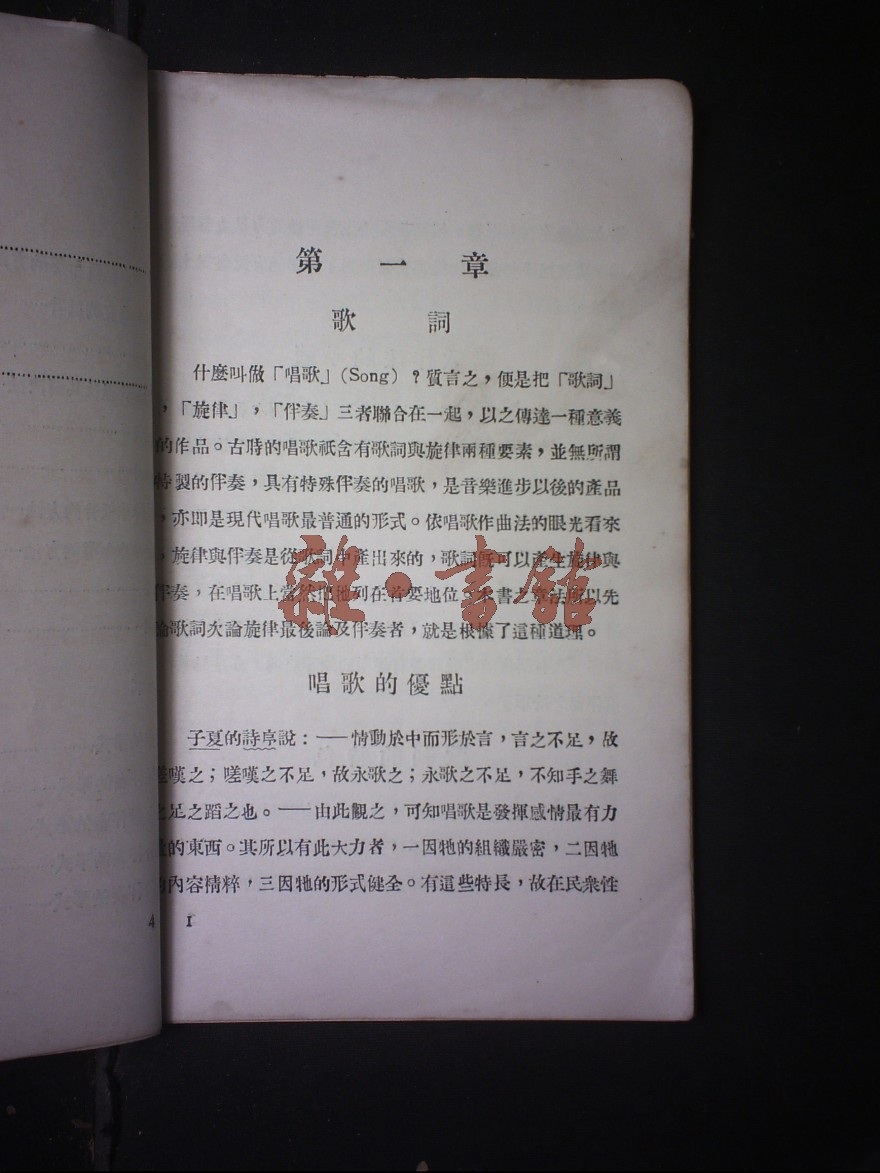 第一章
歌詞
什麼叫做「唱歌」(Song)？質言之，便是把「歌詞」
，「旋律」，「伴奏」三者聯合在一起，以之傳達一種意義
的作品。古時的唱歌祇含有歌詞與旋律兩種要素，並無所謂
特製的伴奏，具有特殊伴奏的唱歌，是音樂進步以後的產品
，亦即是現代唱歌最普通的形式。依唱歌作曲法的眼光看來
，旋律與伴奏是從歌詞中產出來的，歌詞旣可以產生旋律與
伴奏，在唱歌上當然把牠列在首要地位。本書之章法所以先
論歌詞次論旋律最後論及伴奏者，就是根據了這種道理。
唱歌的優點
子夏的詩序說：——情動於中而形於言，言之不足，故
嗟嘆之；嗟嘆之不足，故永歌之；永歌之不足，不知手之舞
之足之蹈之也。——由此觀之，可知唱歌是發揮感情最有力
的東西。其所以有此大力者，一因牠的組織嚴密，二因牠
的內容精粹，三因牠的形式健全。有這些特長，故在民衆性
4 1
雜·書館